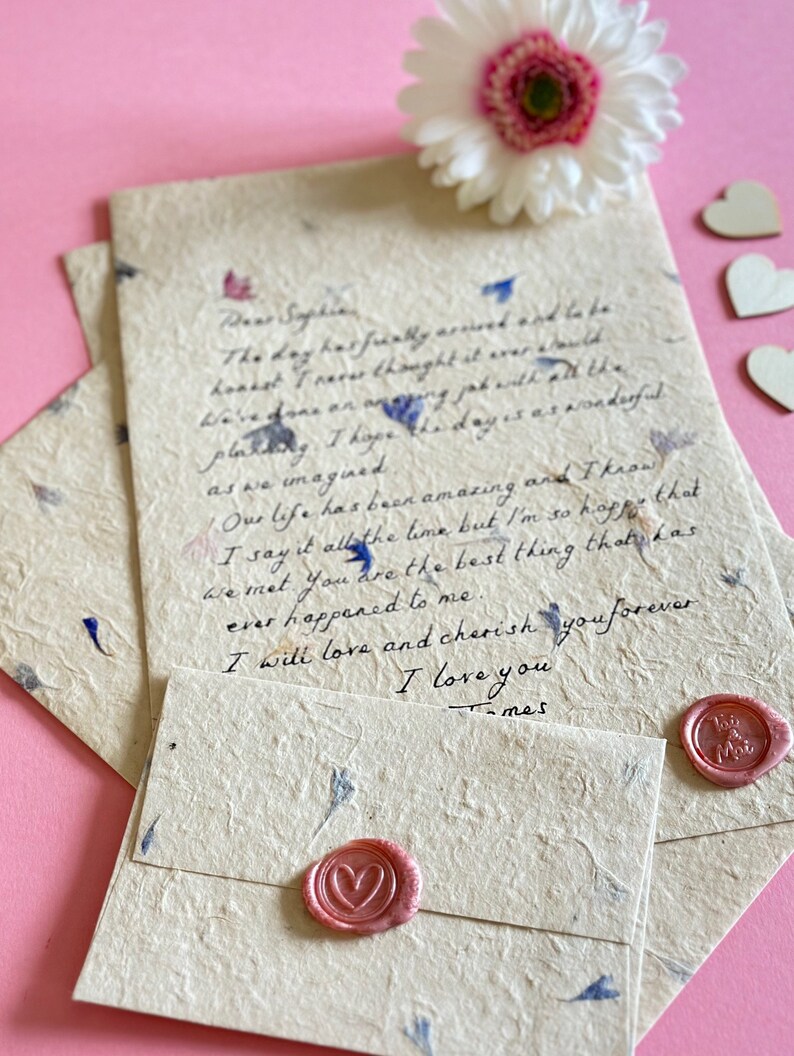 Dear Sophie,
The day has finally arrived and to be
honest I never thought it ever would
We've done an amazing job with all the
planning. I hope the day is as wonderful
as we imagined
Our life has been amazing and I know
I say it all the time but I'm so happy that
we met. You are the best thing that has
ever happened to me.
I will love and cherish you forever
I love you
James
Toi
&
Moi